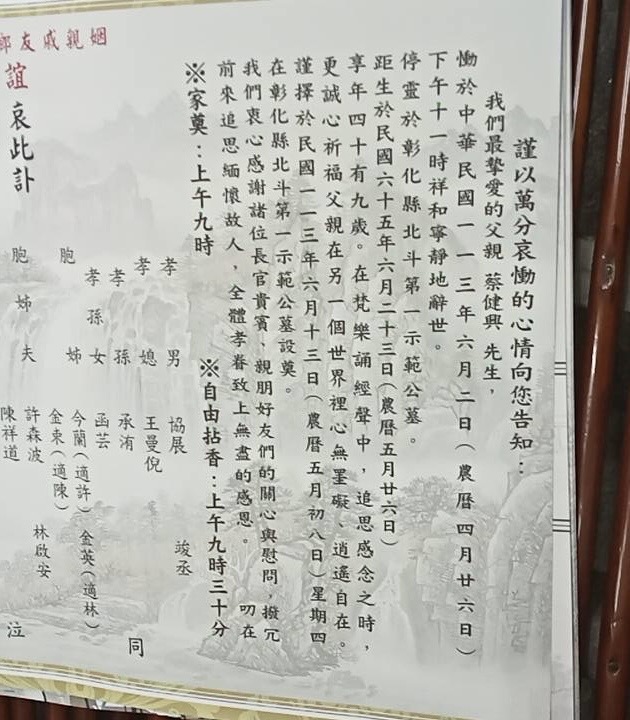 謹以萬分哀慟的心情向您告知：
我們最摯愛的父親 蔡健興 先生，
慟於中華民國一一三年六月二日（農曆四月廿六日）
下午十一時祥和寧靜地辭世。
停靈於彰化縣北斗第一示範公墓。
距生於民國六十五年六月二十三日（農曆五月廿六日）
享年四十有九歲。在梵樂誦經聲中，追思感念之時，
更誠心祈福父親在另一個世界裡心無罣礙、逍遙自在。
謹擇於民國一一三年六月十三日（農曆五月初八日）星期四
在彰化縣北斗第一示範公墓設奠。
我們衷心感謝諸位長官貴賓、親朋好友們的關心與慰問，撥冗
前來追思緬懷故人，全體孝眷致上無盡的感恩。 叨在
※家奠：上午九時 ※自由拈香：上午九時三十分
孝男 協展 竣丞
孝媳 王曼倪
孝孫 承洧
孝孫女 函芸
胞姊 今蘭（適許）金英（適林）
金束（適陳）
胞姊夫 許森波 林啟安
陳祥道
同
泣
姻親戚友鄉
誼 哀此訃